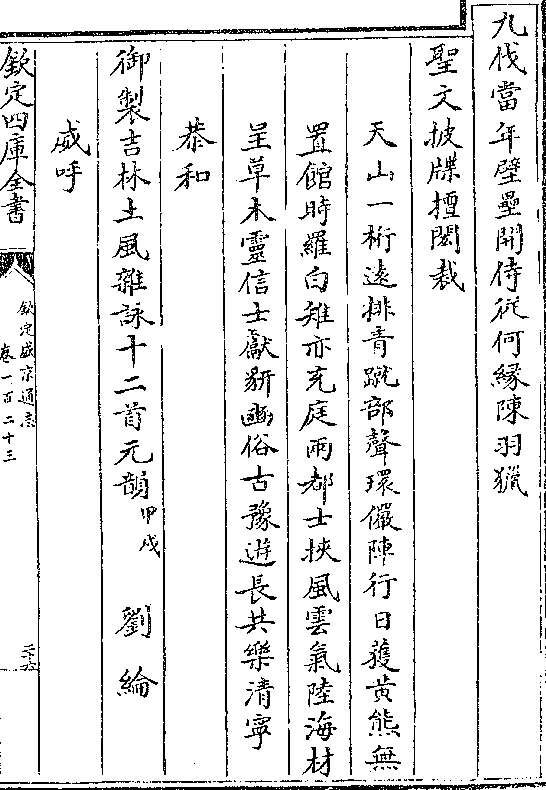 九伐當年壁壘開侍從何緣陳羽獵
聖文披牒擅閎裁
天山一桁逺排青蹴部聲環儼陣行日獲黄熊無
置館時羅白雉亦充庭兩都士挾風雲氣陸海材
呈草木靈信士獻豜豳俗古豫遊長共樂清寧
恭和
御製吉林土風雜詠十二首元韻甲戌 劉綸
威呼
欽定四庫全書
欽定盛京通志
卷一百二十三